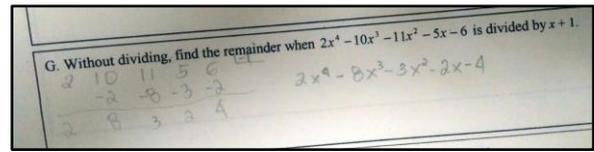 G. Without dividing, find the remainder when 2x⁴ – 10x³ – 11x² – 5x – 6 is divided by x + 1.
2 10 11 5 6 -1
-2 -8 -3 -2
2 8 3 2 4
2x⁴ - 8x³ - 3x² - 2x - 4